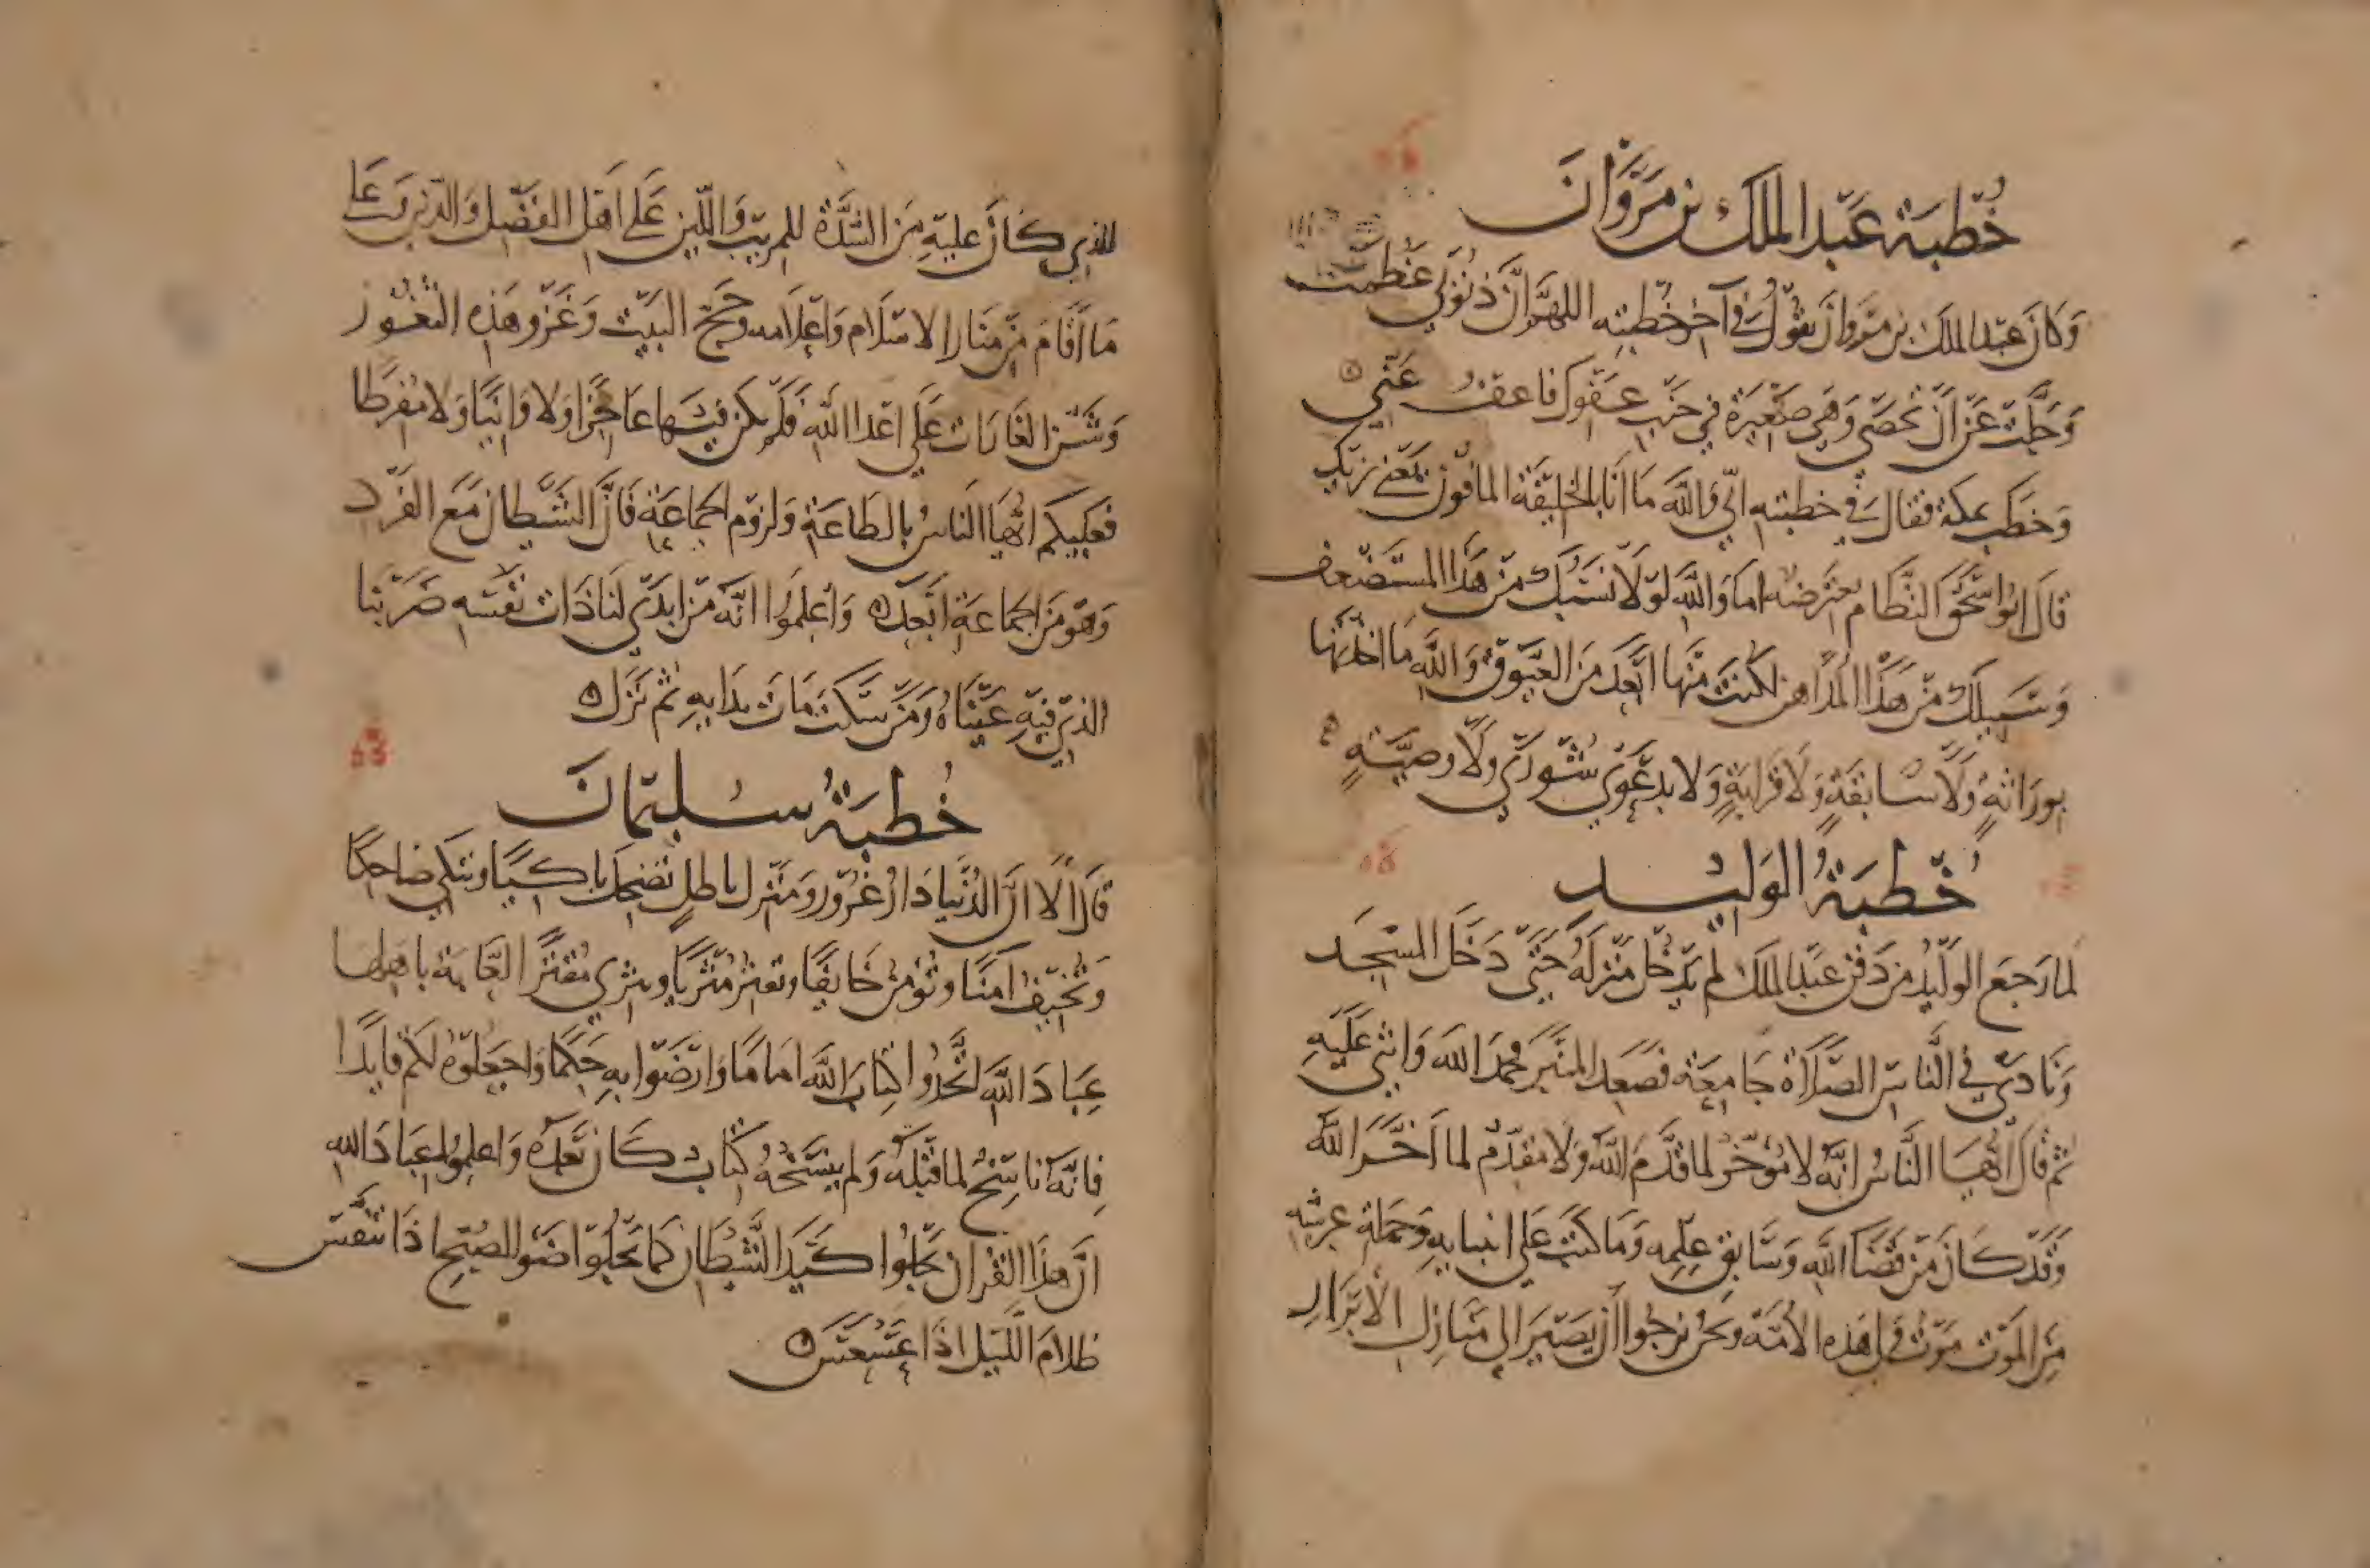 خُطبَة عَبد الملك بن مَروَانَ
وَكَانَ عَبد الملك بن مَروان يَقُولُ في آخر خُطبته اللهم ان ذنُوبي عَظمت
وَجَلّت عَن اَن تحصَى وَهي صَغيرة في جنب عَفوك فاعف عَني
وَخَطبَ بمكة فقال في خطبته اني وَالله مَا اَنا بالخَليفَة المافون يَعني يزيد
قال ابو اسحق النَّظام يعترضه اما وَالله لوَلا نسَبك من هَذا المستضعف
وَسَبيلك من هَذا المداهن لكنت منها ابعَد من العيوق وَالله مَا اخذتها
بورَاثةٍ وَلا سَابقةٍ وَلا قرابةٍ وَلا بدعوَى شورَى ولا وصيّةٍ
خُطبَةُ الوَليد
لما رَجعَ الوليدُ من دَفن عَبد الملك لم يَدخل مَنزله حَتى دَخَل المسجد
وَنَادى في النَّاس الصَّلاة جَامعَة فصَعد المنبَر فحمدَ الله وَاثنى عَلَيهِ
ثم قال اَيُّهَا النَّاسُ انَّهُ لا مُؤخّر لما قدَّمَ اللهُ ولا مقدّم لما اَخَّرَ اللهُ
وَقد كَانَ من قضَا الله وَسَابق عِلمه وَمَا كتبَ عَلى انبيايه وَحَملة عرشه
منَ الموت موتُ ولي هَذه الاُمّة وَنحن نرجُوا اَن يَصيرَ الي مَنازل الابرَار
للذي كانَ عليهِ منَ الشدَّة للمريب وَاللين عَلى اهل الفَضل وَالدين مَع
مَا اَقامَ من مَنار الاسلام وَاعلامه وحجّ البَيت وَغَزو هَذه الثغُور
وَشن الغَارَات عَلى اعدا الله فَلم يكن فيهَا عَاجزا وَلا وَانيًا وَلا مُفرطا
فعَليكم ايُّهَا النَاسُ بالطاعَة وَلزوم الجماعَة فَانَّ الشَيطان مَعَ الفَرد
وَهوَ منَ الجماعَة ابعَد وَاعلموا انَّه مَن ابدَى لنَا ذَات نَفسه ضرَبنا
الذي فيهِ عَينَاهُ وَمَن سَكت مَات بدَايهِ ثم نَزل
خُطبَةُ سُليمَانَ
قَالَ الا انَّ الدُنيَا دَارُ غُرُور وَمنزل باطلٍ تضحك باكيًا وتبكي ضاحكا
وَتُخيف آمنًا وتُؤمن خَايفًا وتفقر مُثريًا وتثري مُقترًا لعَابة باهلها
عِبَادَ الله اتَّخِذُوا كتابَ الله امامًا وَارتضَوا بهِ حَكمًا وَاجعَلوهُ لكم قايدًا
فانَّه ناسِخٌ لما قبلهُ وَلم ينسَخهُ كتابٌ كَان بَعدَهُ وَاعلمُوا عبَادَ الله
انَّ هذَا القُرآن يَجلُوا كيدَ الشَّيطان كمَا يجلوا ضَو الصُبح اذَا تنفّسَ
ظلامَ اللَّيل اذَا عَسعَسَ